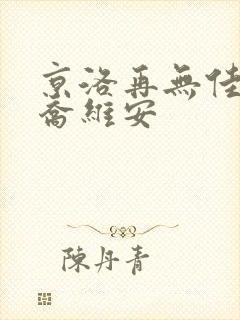 京洛再無佳
喬維安
陳丹青